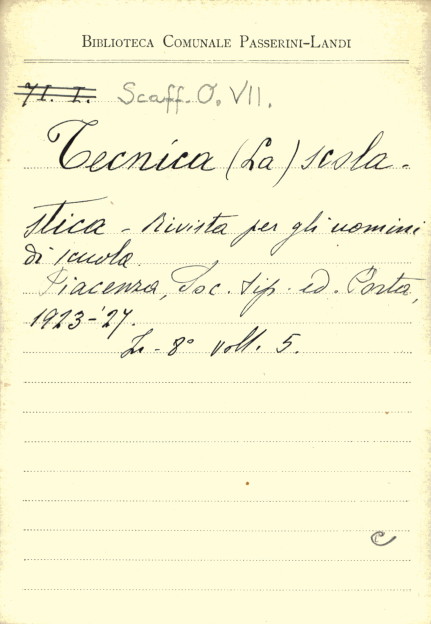 BIBLIOTECA COMUNALE PASSERINI-LANDI
71. I. Scaff. O. VII.
Tecnica (La) scola-
stica - Rivista per gli uomini
di scuola.
Piacenza, Soc. tip. ed. Porta,
1923-27.
In-8° voll. 5.
C